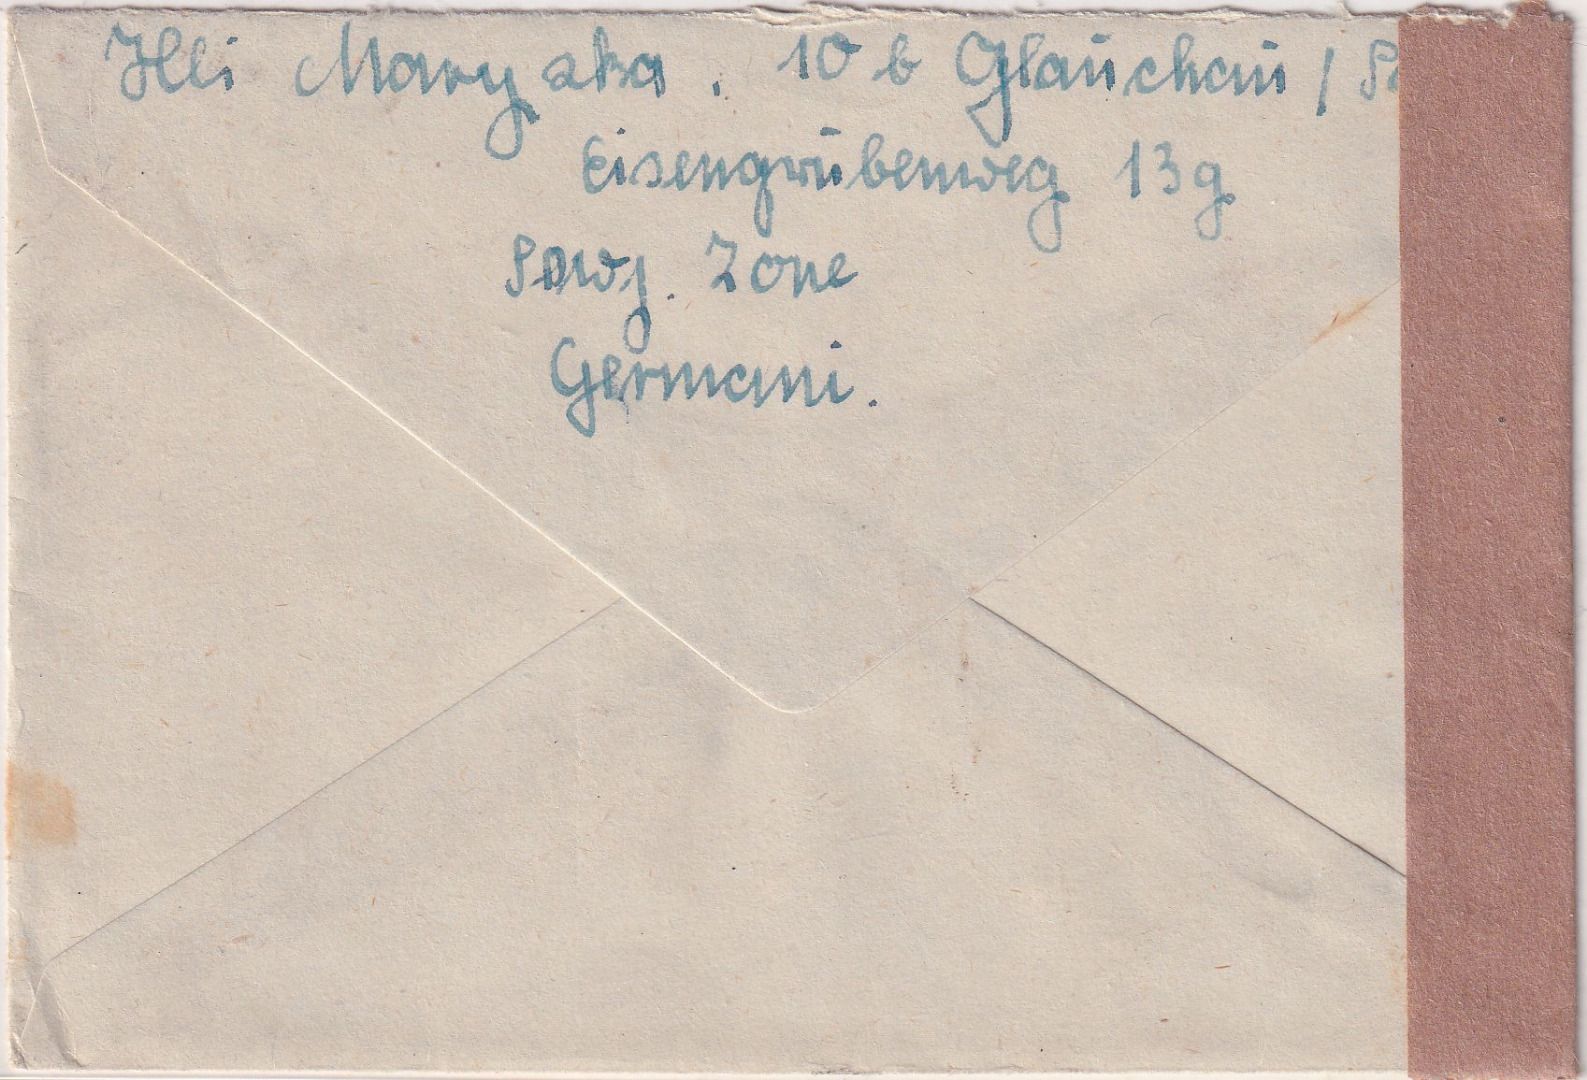 Illi Maryzka. 10 b Glauchau / Sa
Eisengrubenweg 13g
Sowj. Zone
Germani.